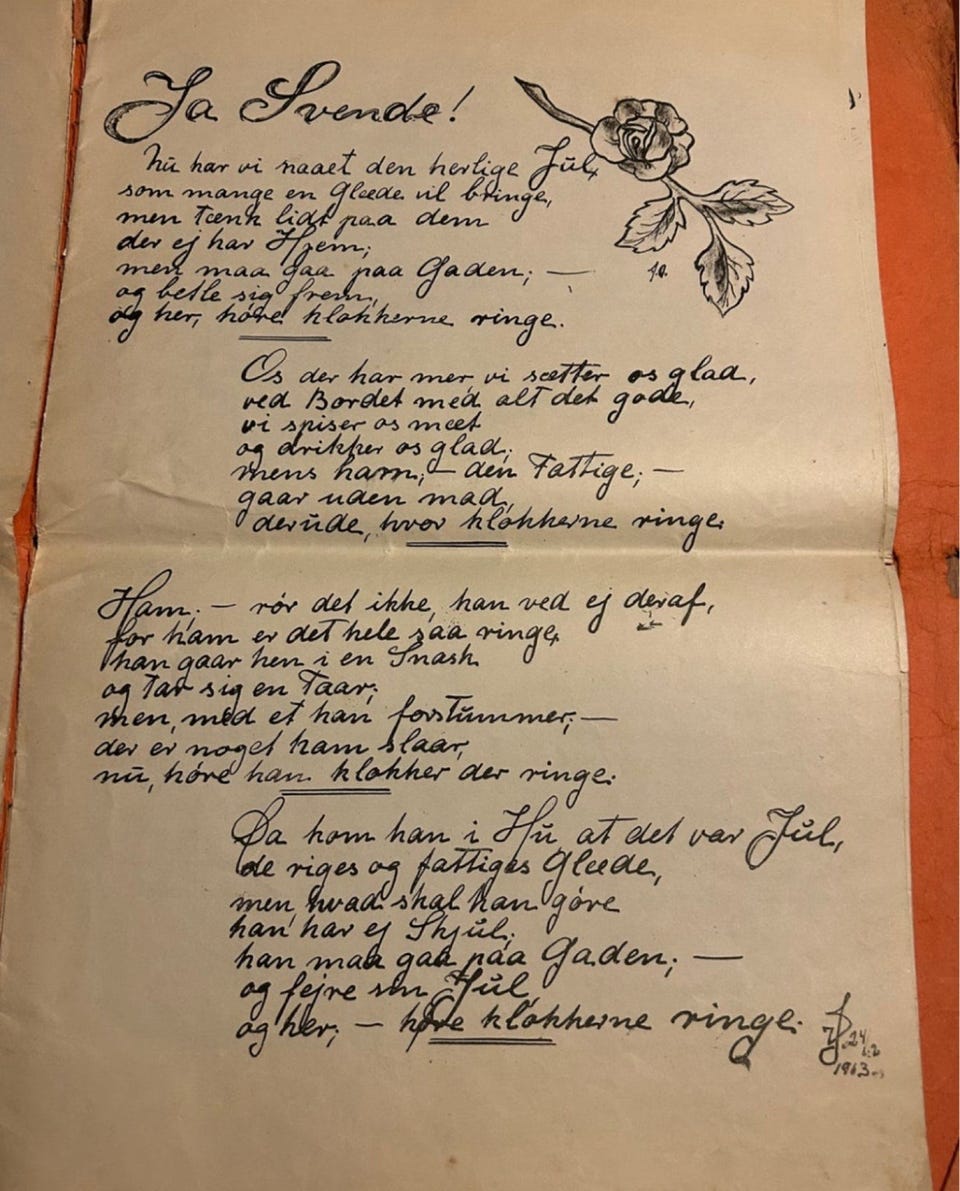 Ja Svende!
Nu har vi naaet den herlige Jul,
som mange en Glæde vil bringe,
men tænk lidt paa dem
der ej har Hjem;
men maa gaa paa Gaden; —
og betle sig frem,
og her, høre klokkerne ringe.
Os der har mer, vi sætter os glad,
ved Bordet med alt det gode,
vi spiser os mæt
og drikker os glad,
mens ham; — den Fattige; —
gaar uden mad,
derude, hvor klokkerne ringe.
Ham; — rör det ikke, han ved ej deraf,
for ham er det hele saa ringe,
han gaar hen i en Snask
og Tar sig en Taar;
men, med et han forstummer; —
der er noget ham slaar,
nu, höre han klokker der ringe.
Da kom han i Hu at det var Jul,
de riges og fattiges Glæde,
men, hvad skal han göre
han har ej Skjul;
han maa gaa paa Gaden; —
og fejre sin Jul,
og her; — høre klokkerne ringe.
24